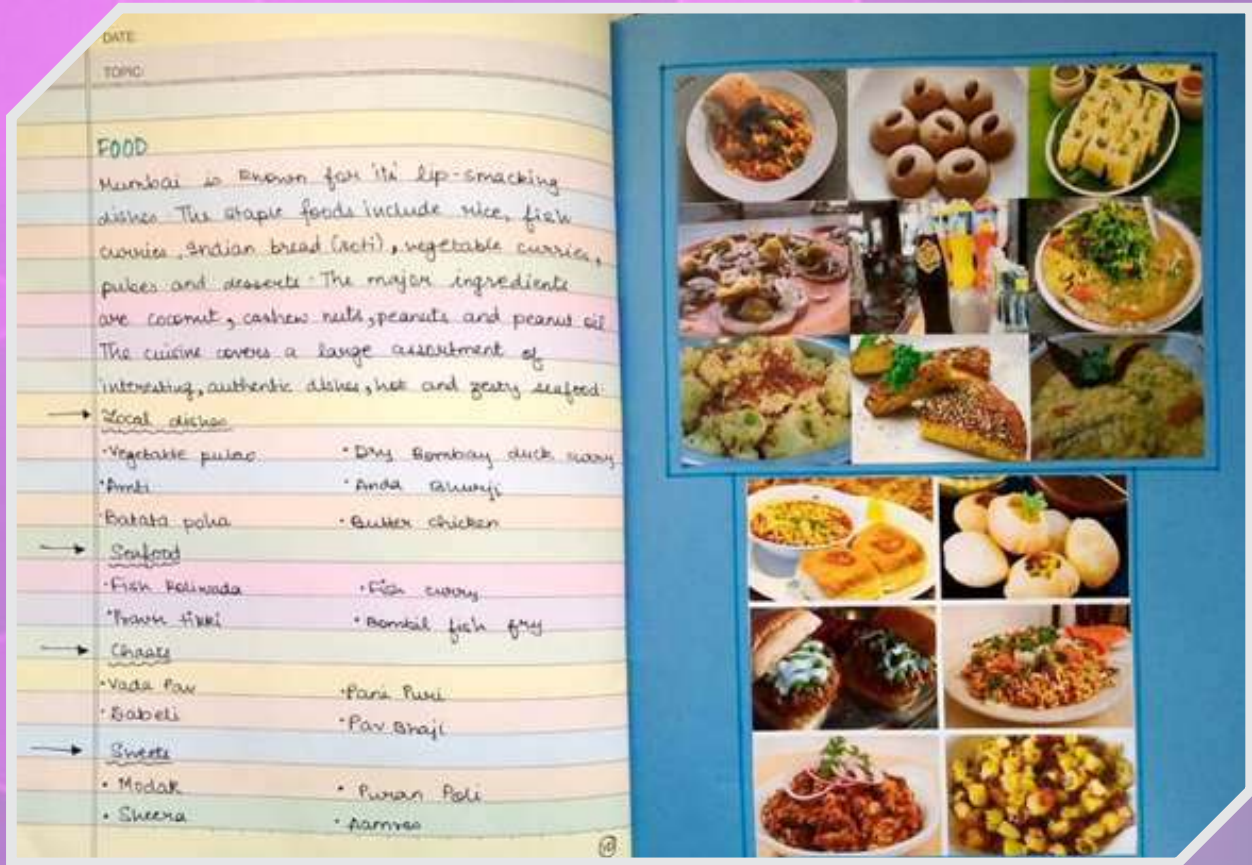 DATE:
TOPIC:
FOOD
Mumbai is known for its' lip-smacking
dishes. The staple foods include rice, fish
curries, Indian bread (roti), vegetable curries,
pulses and desserts. The major ingredients
are coconut, cashew nuts, peanuts and peanut oil
The cuisine covers a large assortment of
interesting, authentic dishes, hot and zesty seafood.
→ Local dishes
• Vegetable pulao • Dry Bombay duck curry
• Amti • Anda Bhurji
• Batata poha • Butter chicken
→ Seafood
• Fish Koliwada • Fish curry
• Prawn tikki • Bombil fish fry
→ Chaats
• Vada Pav • Pani Puri
• Dabeli • Pav Bhaji
→ Sweets
• Modak • Puran Poli
• Sheera • Aamras
10